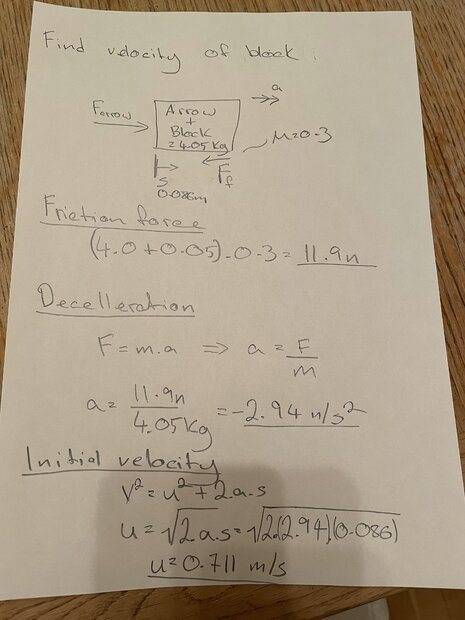 Find velocity of block :
a
Farrow
Arrow
+
Block
= 4.05 Kg
M=0.3
s
0.086m
Ff
Friction force
(4.0 + 0.05) . 0.3 = 11.9n
Decelleration
F = m.a ⇒ a = F/m
a = 11.9n/4.05Kg = -2.94 n/s²
Initial velocity
V² = u² + 2.a.s
u = √2a.s = √2.(2.94)(0.086)
u = 0.711 m/s